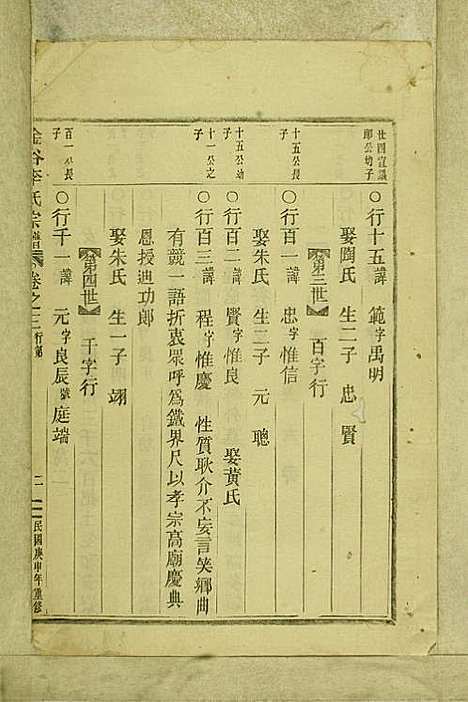 廿四宣議
郎公幼子
○行十五諱 範字禹明
娶陶氏 生二子 忠 賢
第三世 百字行
十五公長
子
○行百一諱 忠字惟信
娶朱氏 生二子 元 聰
十五公幼
子
○行百二諱 賢字惟良 娶黃氏
十一公之
子
○行百三諱 程字惟慶 性質耿介不妄言笑鄉曲
有競一語折衷衆呼爲鐵界尺以孝宗高廟慶典
恩授迪功郎
娶朱氏 生一子 翊
第四世 千字行
百一公長
子
○行千一諱 元字良辰號庭端
金谷李氏宗譜 卷之二 行第 二 民國庚申年重修